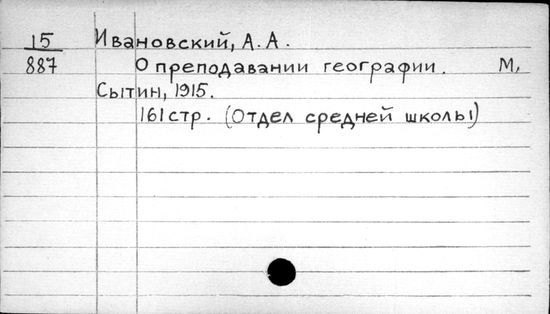 15 Ивановский, А.А.
887 О преподавании географии. М,
Сытин, 1915.
161 стр. (Отдел средней школы)